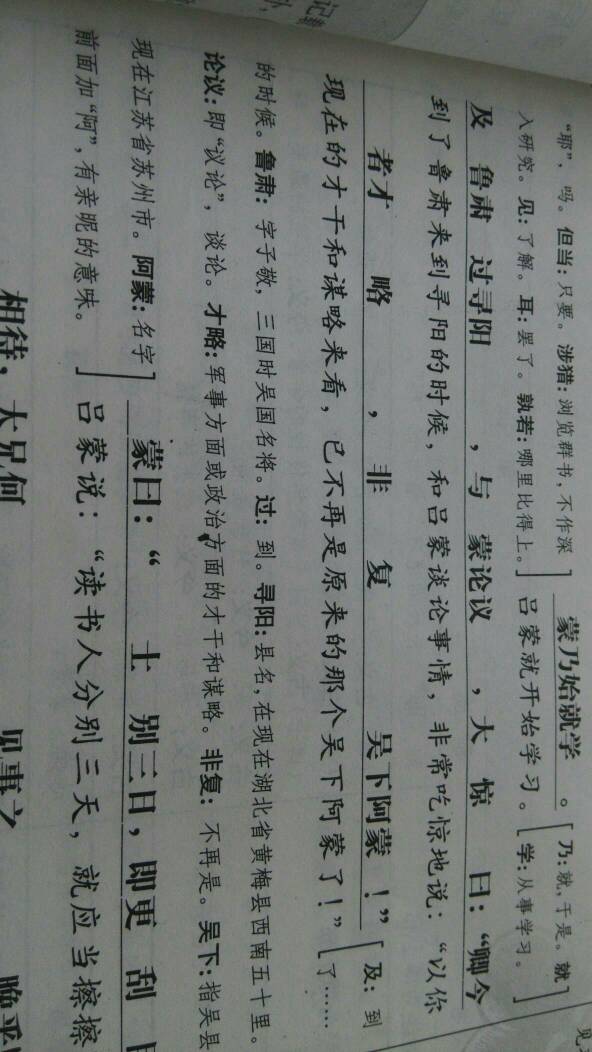 “耶”,吗。但当:只要。涉猎:浏览群书,不作深
入研究。见:了解。耳:罢了。孰若:哪里比得上。]
蒙乃始就学。
吕蒙就开始学习。
[乃:就,于是。就
学:从事学习。]
及鲁肃过寻阳,与蒙论议,大惊曰:“卿今
到了鲁肃来到寻阳的时候,和吕蒙谈论事情,非常吃惊地说:“以你
者才略,非复吴下阿蒙!”
现在的才干和谋略来看,已不再是原来的那个吴下阿蒙了!”
[及:到
了……
的时候。鲁肃:字子敬,三国时吴国名将。过:到。寻阳:县名,在现在湖北省黄梅县西南五十里。
论议:即“议论”,谈论。才略:军事方面或政治方面的才干和谋略。非复:不再是。吴下:指吴县
现在江苏省苏州市。阿蒙:名字
前面加“阿”,有亲昵的意味。]
蒙曰:“士别三日,即更刮
吕蒙说:“读书人分别三天,就应当擦擦
相待,大兄何